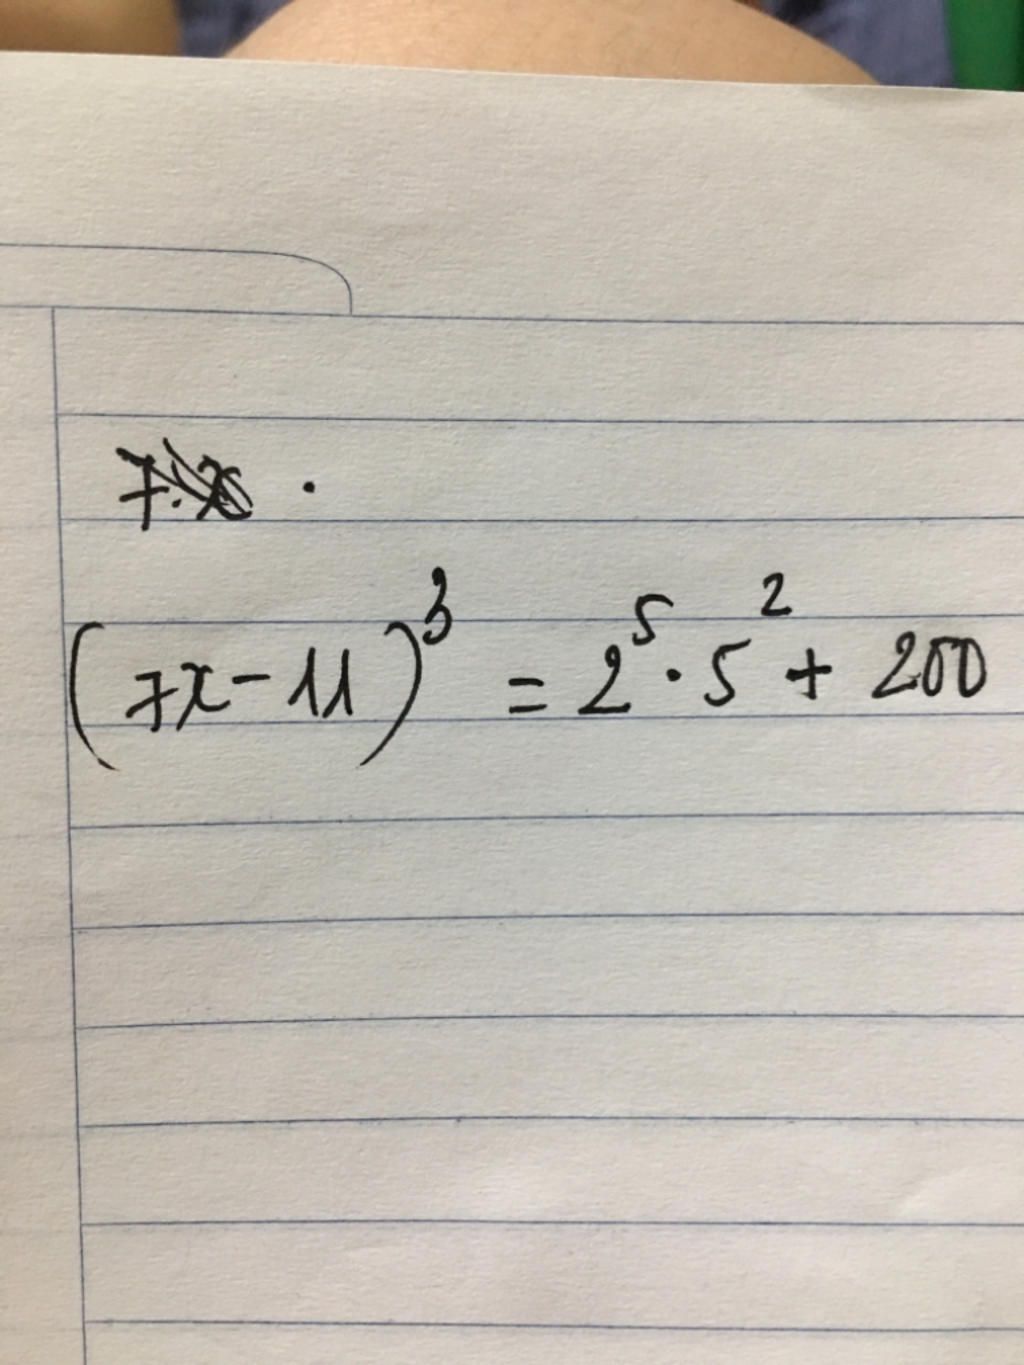 7.x .
(7x - 11)³ = 2⁵ · 5² + 200